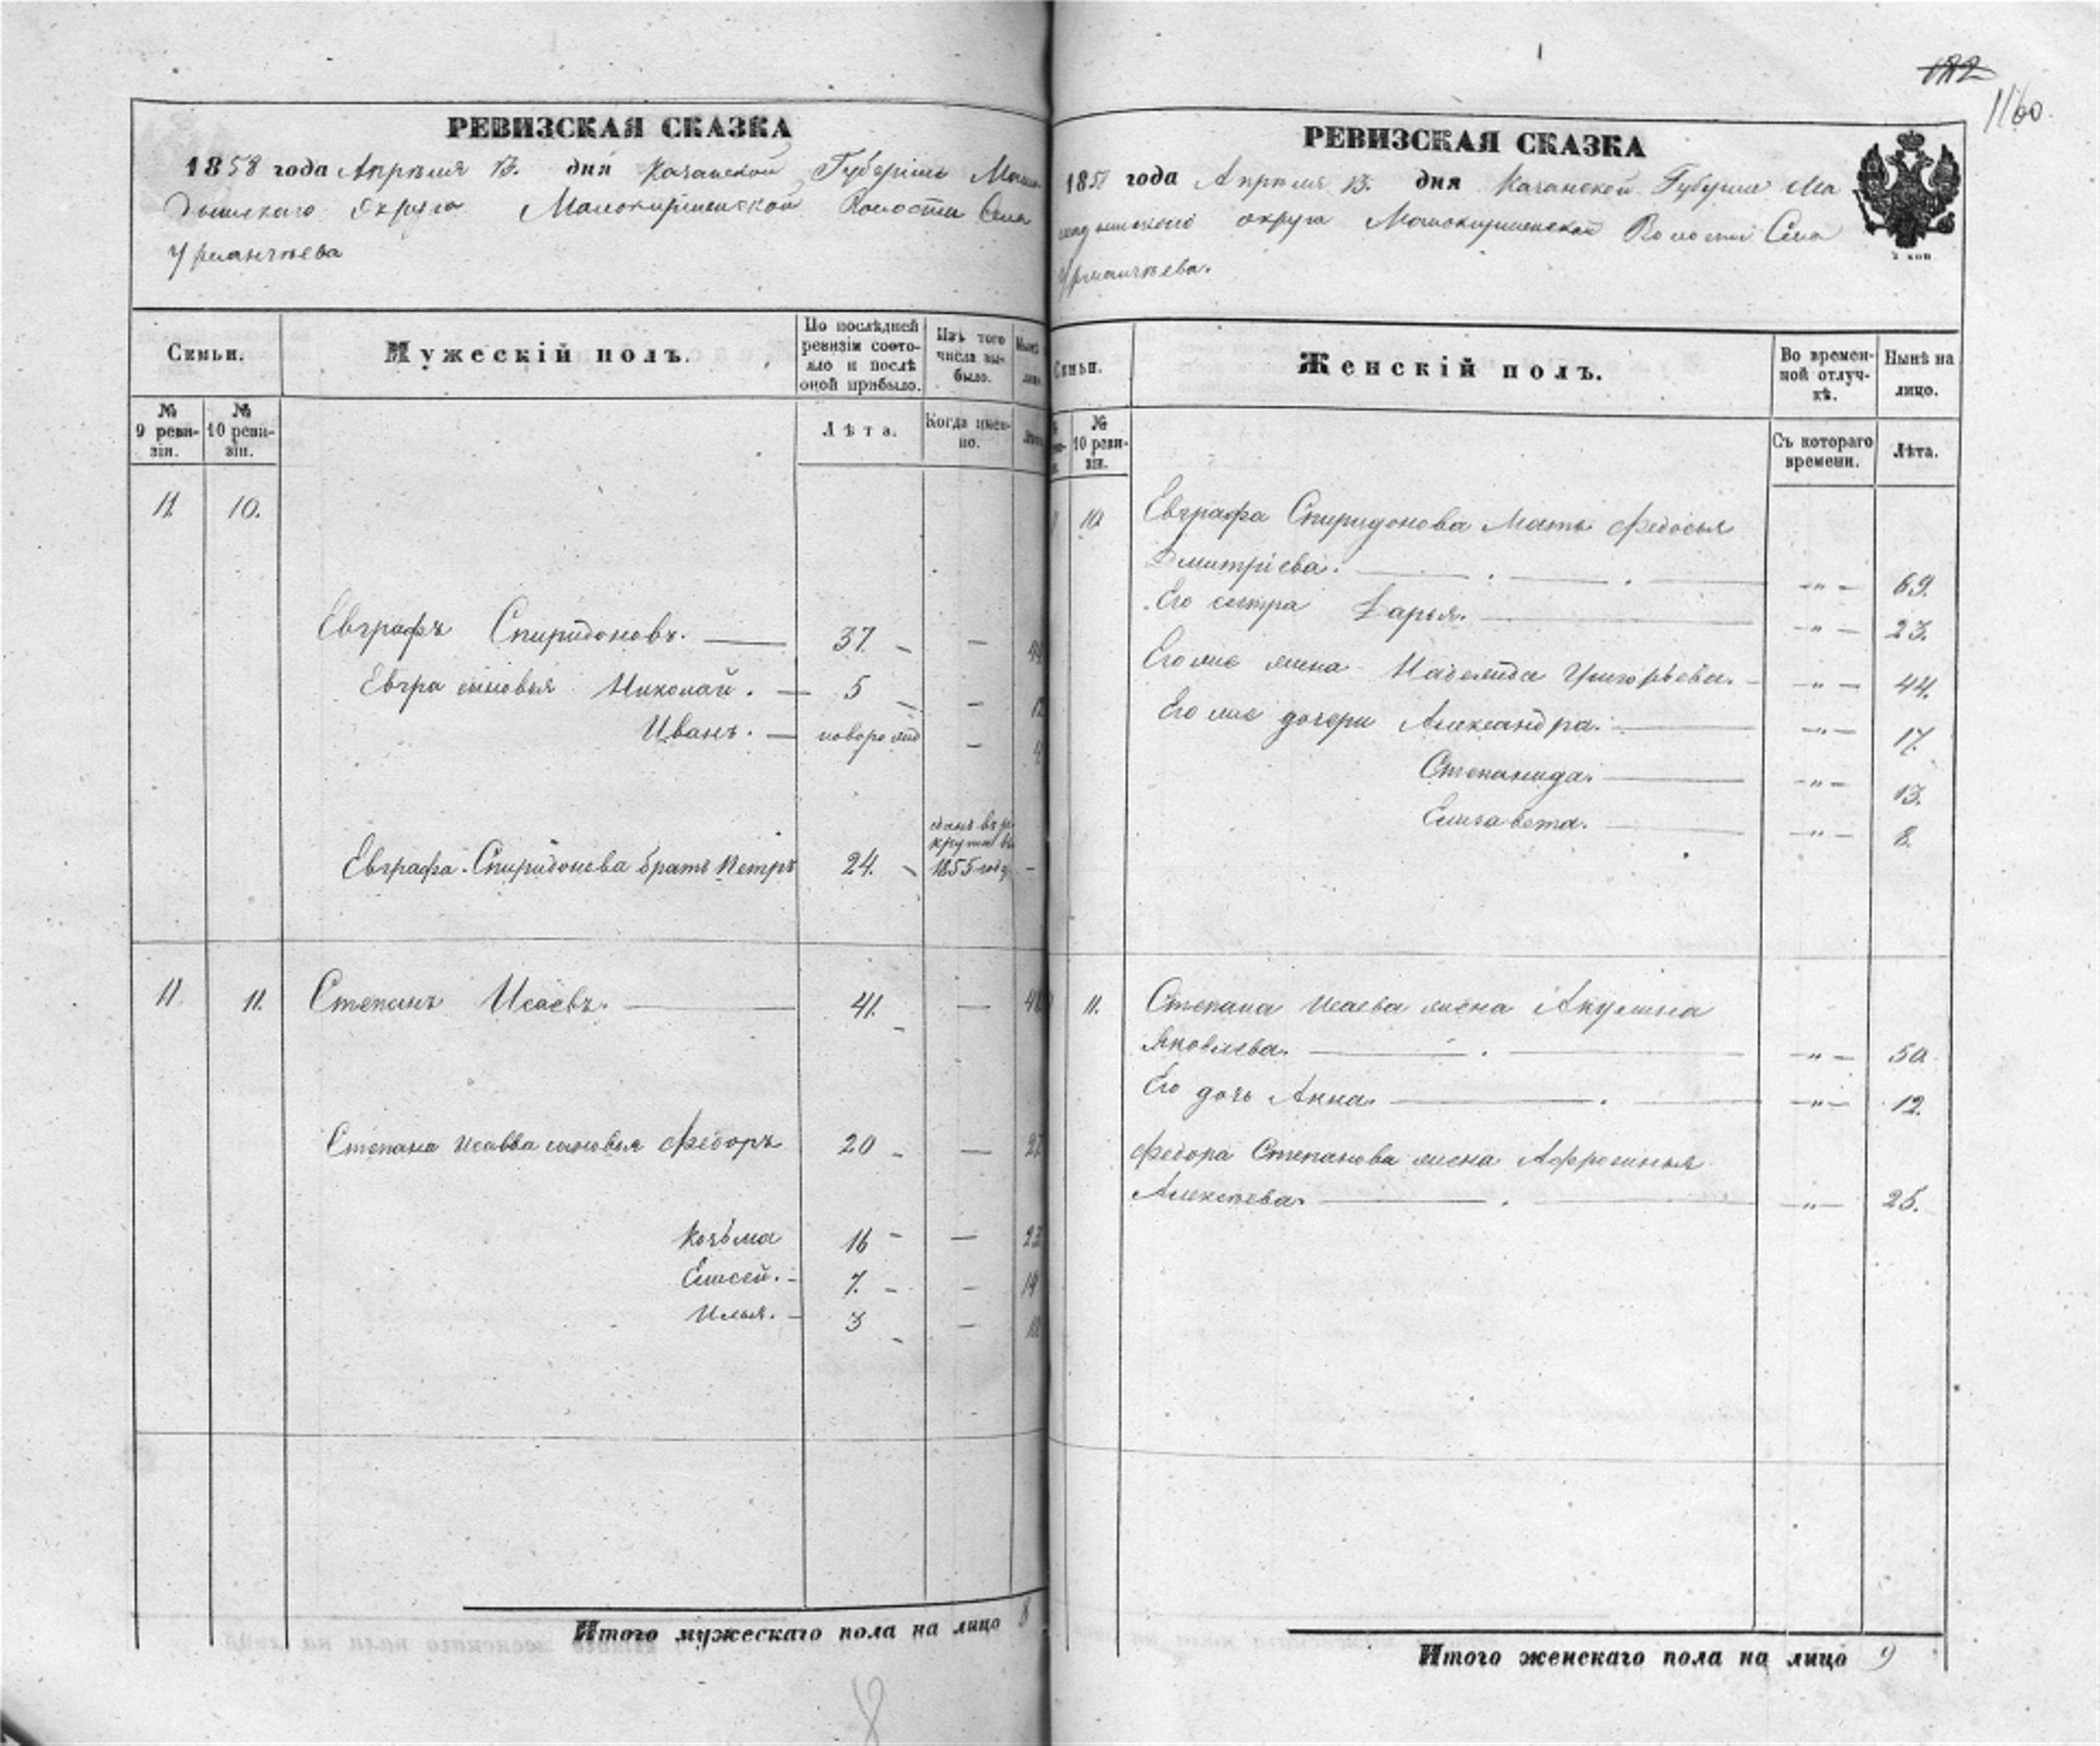 182
1160.
РЕВИЗСКАЯ СКАЗКА
1858 года Апрѣля 13. дня Казанской Губерніи Мама
дышскаго Округа Малокирменской Волости Села
Урманчѣева
Семьи.
Мужескій полъ.
По послѣдней ревизіи состо-
яло и послѣ
оной прибыло.
Изъ того
числа вы-
было.
Нынѣ
лицо.
№
9 реви-
зіи.
№
10 реви-
зіи.
Лѣта.
Когда имен-
но.
11. 10.
Евграфъ Спиридоновъ. 37. —
Евгра сыновья Николай. 5 —
Иванъ. новорожд —
Евграфа Спиридонова братъ Петръ 24. отданъ въ ре
круты въ
1855 году —
11. 11. Степанъ Исаевъ. 41. —
Степана Исаева сыновья Федоръ 20 —
Козьма 16 —
Елисей. 7. —
Илья. 3 —
Итого мужескаго пола на лицо 8
РЕВИЗСКАЯ СКАЗКА
1858 года Апрѣля 13. дня Казанской Губерніи Ма
мадышскаго округа Малокирменской Волости Села
Урманчѣева.
2 коп
Семьи.
Женскій полъ.
Во времен-
ной отлуч-
кѣ.
Нынѣ на
лицо.
№
10 реви-
зіи.
Съ котораго
времени.
Лѣта.
10. Евграфа Спиридонова Мать Федосья
Дмитріева. — " — 69.
Его сестра Дарья. — " — 23.
Его же жена Надежда Григорьева. — " — 44.
Его же дочери Александра. — " — 17.
Степанида. — " — 13.
Елизавета. — " — 8.
11. Степана Исаева жена Акулина
Яковлева. — " — 50.
Его дочь Анна. — " — 12.
Федора Степанова жена Афросинья
Алексѣева. — " — 25.
Итого женскаго пола на лицо 9
8